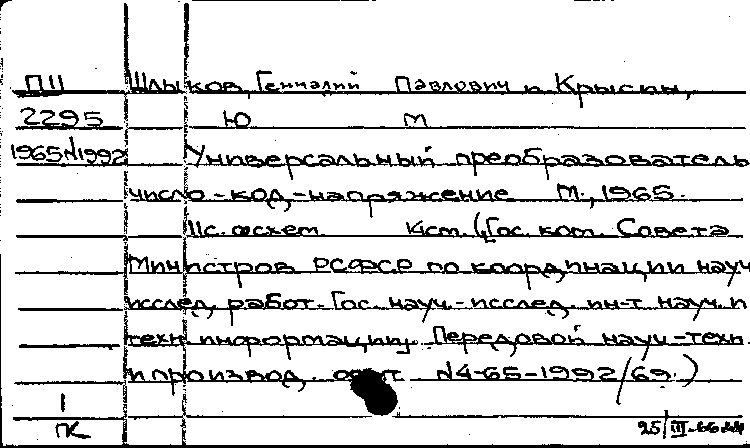 ПШ Шлыков, Геннадий Павлович и Крысин,
2295 Ю М
1965N1992 Универсальный преобразователь
число-код-напряжение М., 1965.
11с. со схем. 14см. (Гос. ком. Совета
Министров РСФСР по координации науч
исслед. работ. Гос. науч.-исслед. ин-т науч. и
техн информации. Передовой науч-техн
и производ. опыт N4-65-1992/69.)
1
ПК 25/III-66